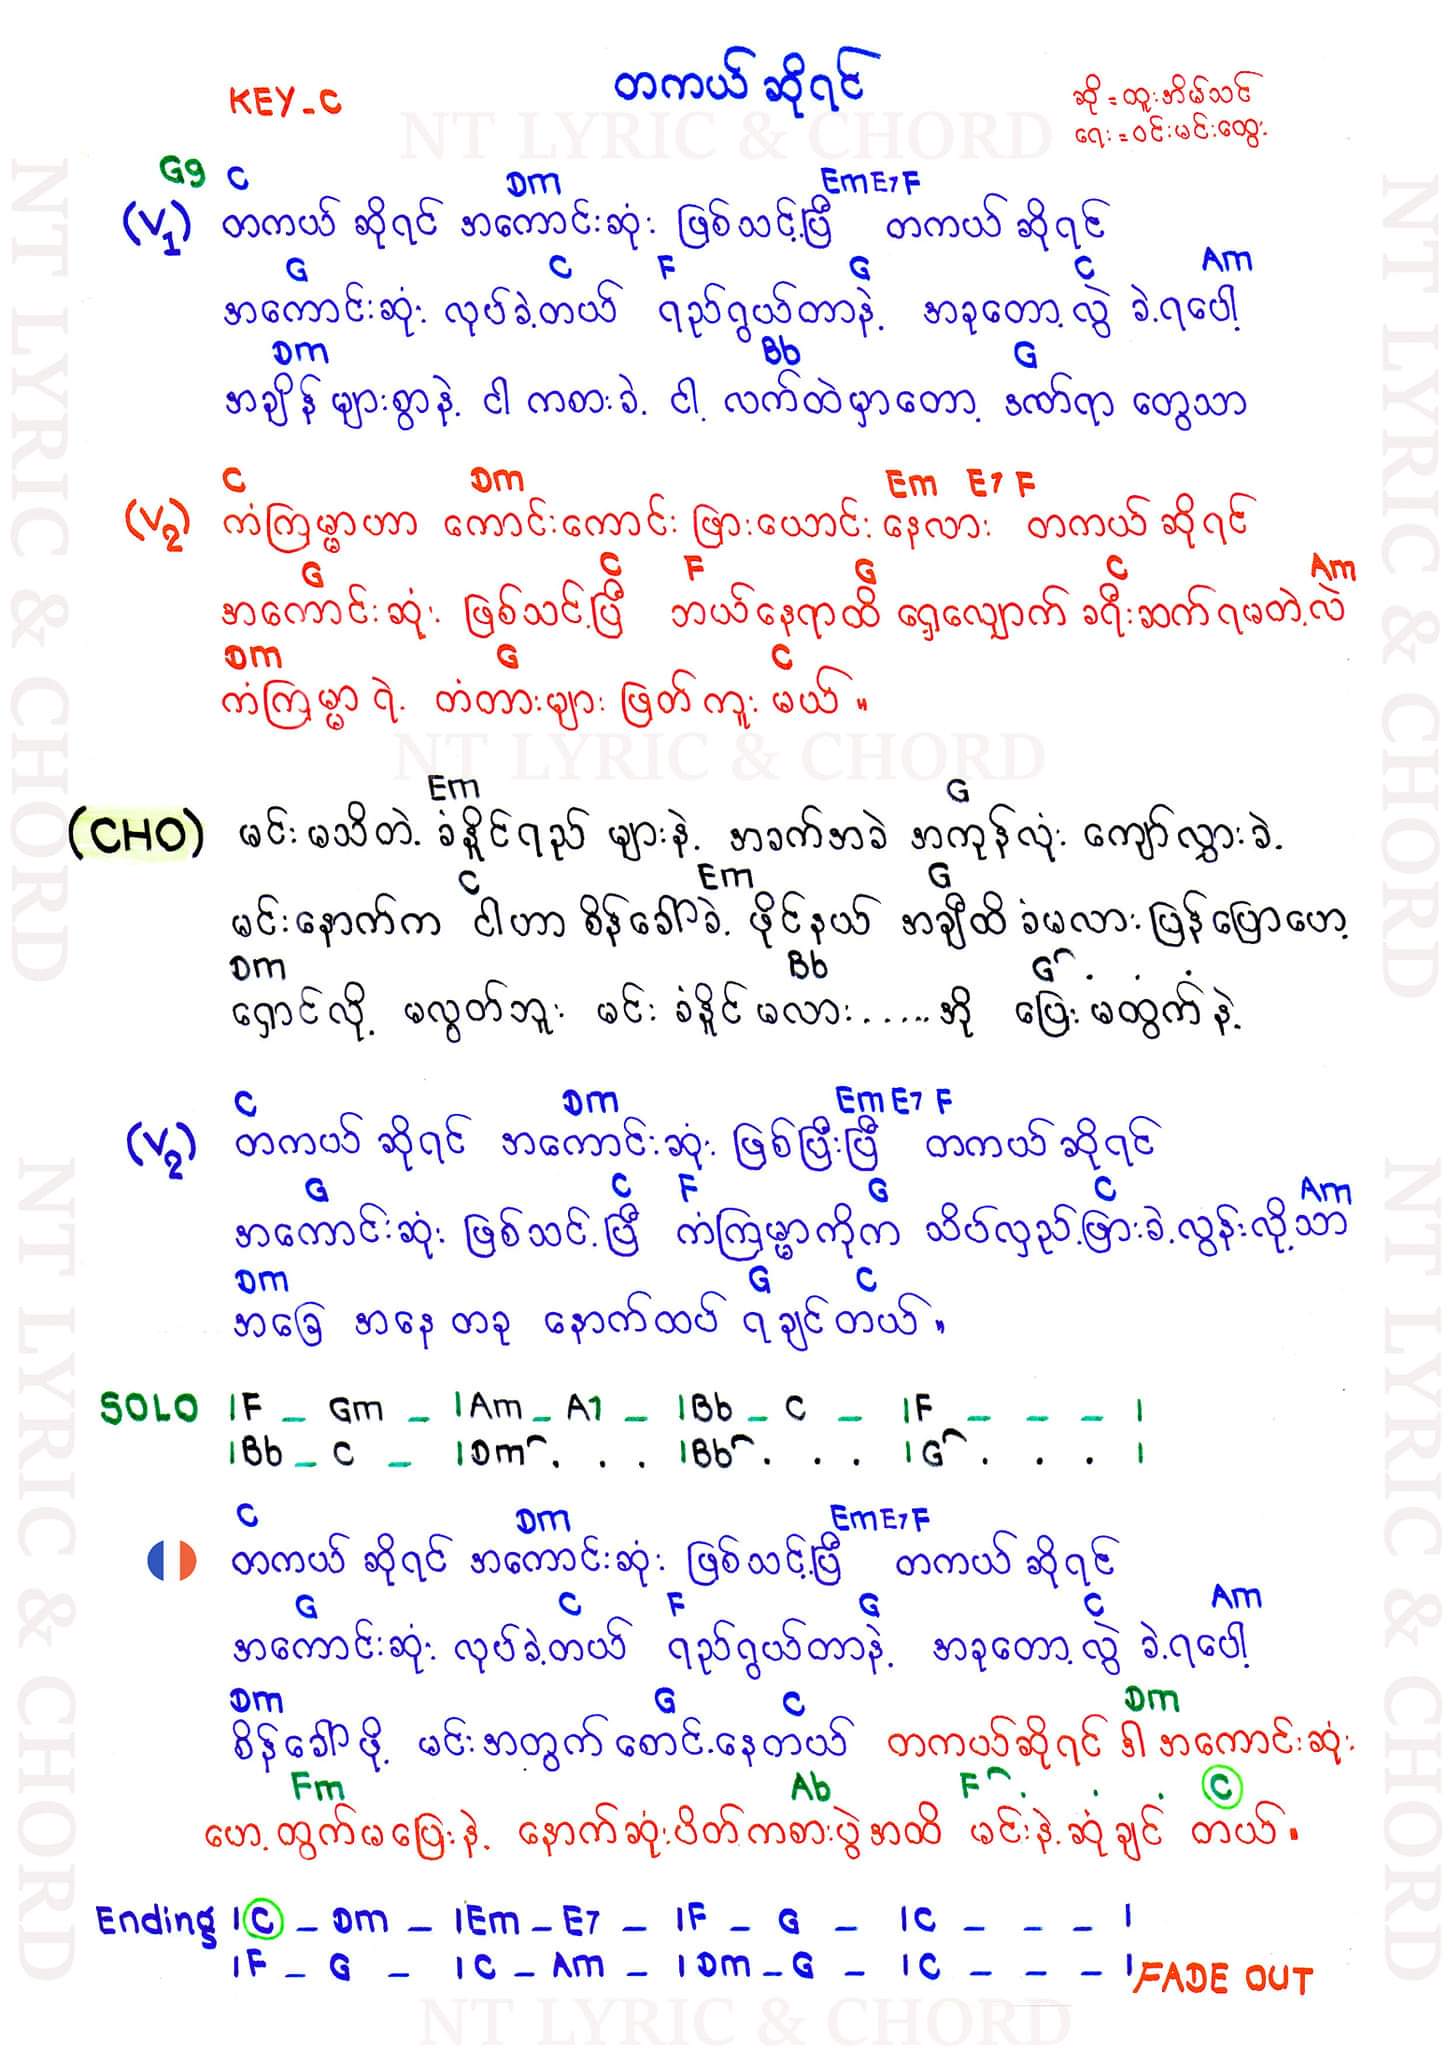 တကယ် ဆိုရင်
KEY_C
ဆို = ထူးအိမ်သင်
ရေး = ဝင်းမင်းထွေး
NT LYRIC & CHORD
G9 C Dm Em E7 F
(V1) တကယ် ဆိုရင် အကောင်းဆုံး ဖြစ်သင့်ပြီ တကယ် ဆိုရင်
G C F G C Am
အကောင်းဆုံး လုပ်ခဲ့တယ် ရည်ရွယ်တာနဲ့ အခုတော့ လွဲ ခဲ့ရပေါ့
Dm Bb G
အချိန် များစွာနဲ့ ငါ ကစားခဲ့ ငါ့ လက်ထဲမှာတော့ ဒဏ်ရာ တွေသာ
C Dm Em E7 F
(V2) ကံကြမ္မာဟာ ကောင်းကောင်း ဖြားယောင်း နေလား တကယ် ဆိုရင်
G C F G C Am
အကောင်းဆုံး ဖြစ်သင့်ပြီ ဘယ်နေရာထိ ရှေ့လျှောက် ခရီးဆက်ရမတဲ့လဲ
Dm G C
ကံကြမ္မာရဲ့ တံတားများ ဖြတ်ကူး မယ်။
NT LYRIC & CHORD
Em G
(CHO) မင်းမသိတဲ့ ခံနိုင်ရည် များနဲ့ အခက်အခဲ အကုန်လုံး ကျော်လွှားခဲ့
C Em G
မင်းနောက်က ငါဟာ စိန်ခေါ်ခဲ့ ဖိုင်နယ် အချီထိ ခံမလား ပြန်ပြောဟေ့
Dm Bb G . . .
ရှောင်လို့ မလွတ်ဘူး မင်း ခံနိုင်မလား...... အို ပြေးမထွက်နဲ့
C Dm Em E7 F
(V2) တကယ် ဆိုရင် အကောင်းဆုံး ဖြစ်ပြီးပြီ တကယ် ဆိုရင်
G C F G C Am
အကောင်းဆုံး ဖြစ်သင့်ပြီ ကံကြမ္မာကိုက သိပ်လှည့်ဖြားခဲ့လွန်းလို့သာ
Dm G C
အခြေ အနေ တခု နောက်ထပ် ရချင်တယ်။
SOLO |F _ Gm _ |Am _ A7 _ |Bb _ C _ |F _ _ _ |
|Bb _ C _ |Dm . . . |Bb . . . |G . . . |
C Dm Em E7 F
တကယ် ဆိုရင် အကောင်းဆုံး ဖြစ်သင့်ပြီ တကယ် ဆိုရင်
G C F G C Am
အကောင်းဆုံး လုပ်ခဲ့တယ် ရည်ရွယ်တာနဲ့ အခုတော့ လွဲ ခဲ့ရပေါ့
Dm G C Dm
စိန်ခေါ်ဖို့ မင်းအတွက် စောင့်နေတယ် တကယ်ဆိုရင် ဒါ အကောင်းဆုံး
Fm Ab F . . . C
ဟေ့ထွက်မပြေးနဲ့ နောက်ဆုံးပိတ်ကစားပွဲအထိ မင်းနဲ့ဆုံချင် တယ်။
Ending |C _ Dm _ |Em _ E7 _ |F _ G _ |C _ _ _ |
|F _ G _ |C _ Am _ |Dm _ G _ |C _ _ _ | FADE OUT
NT LYRIC & CHORD
NT LYRIC & CHORD
NT LYRIC & CHORD
NT LYRIC & CHORD
NT LYRIC & CHORD